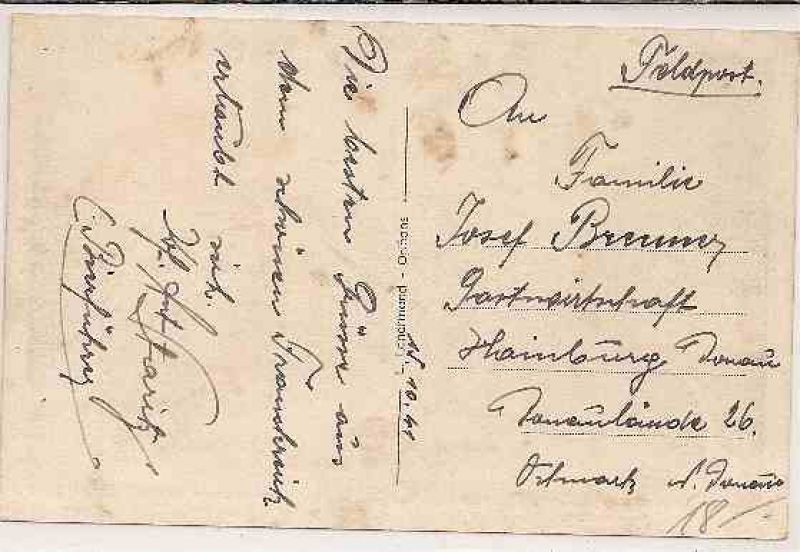 Die besten Grüsse aus
dem schönen Frankreich
erlaubt sich
Feldpost.
An
Familie
Josef Brenner
Gastwirtschaft
Hainburg Donau
Donaulände 26.
Ostmark N. Donau
18
10.41
Lenormand - Orléans